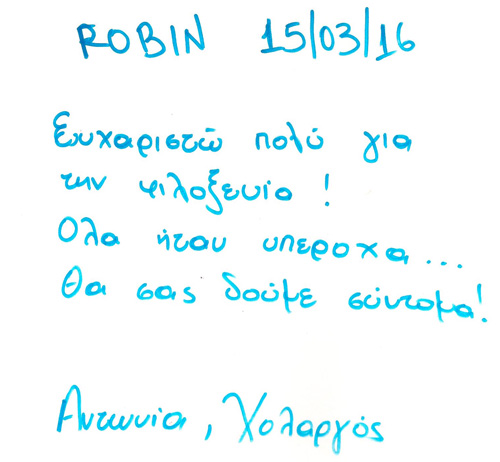 ROBIN 15/03/16
Ευχαριστώ πολύ για
την φιλοξενία !
Ολα ήταν υπεροχα...
Θα σας δούμε σύντομα!
Αντωνία, Χολαργός